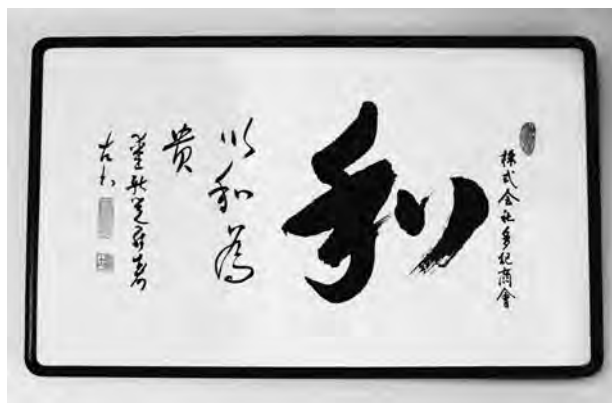 株式会社多紀商會
和
以和為
貴